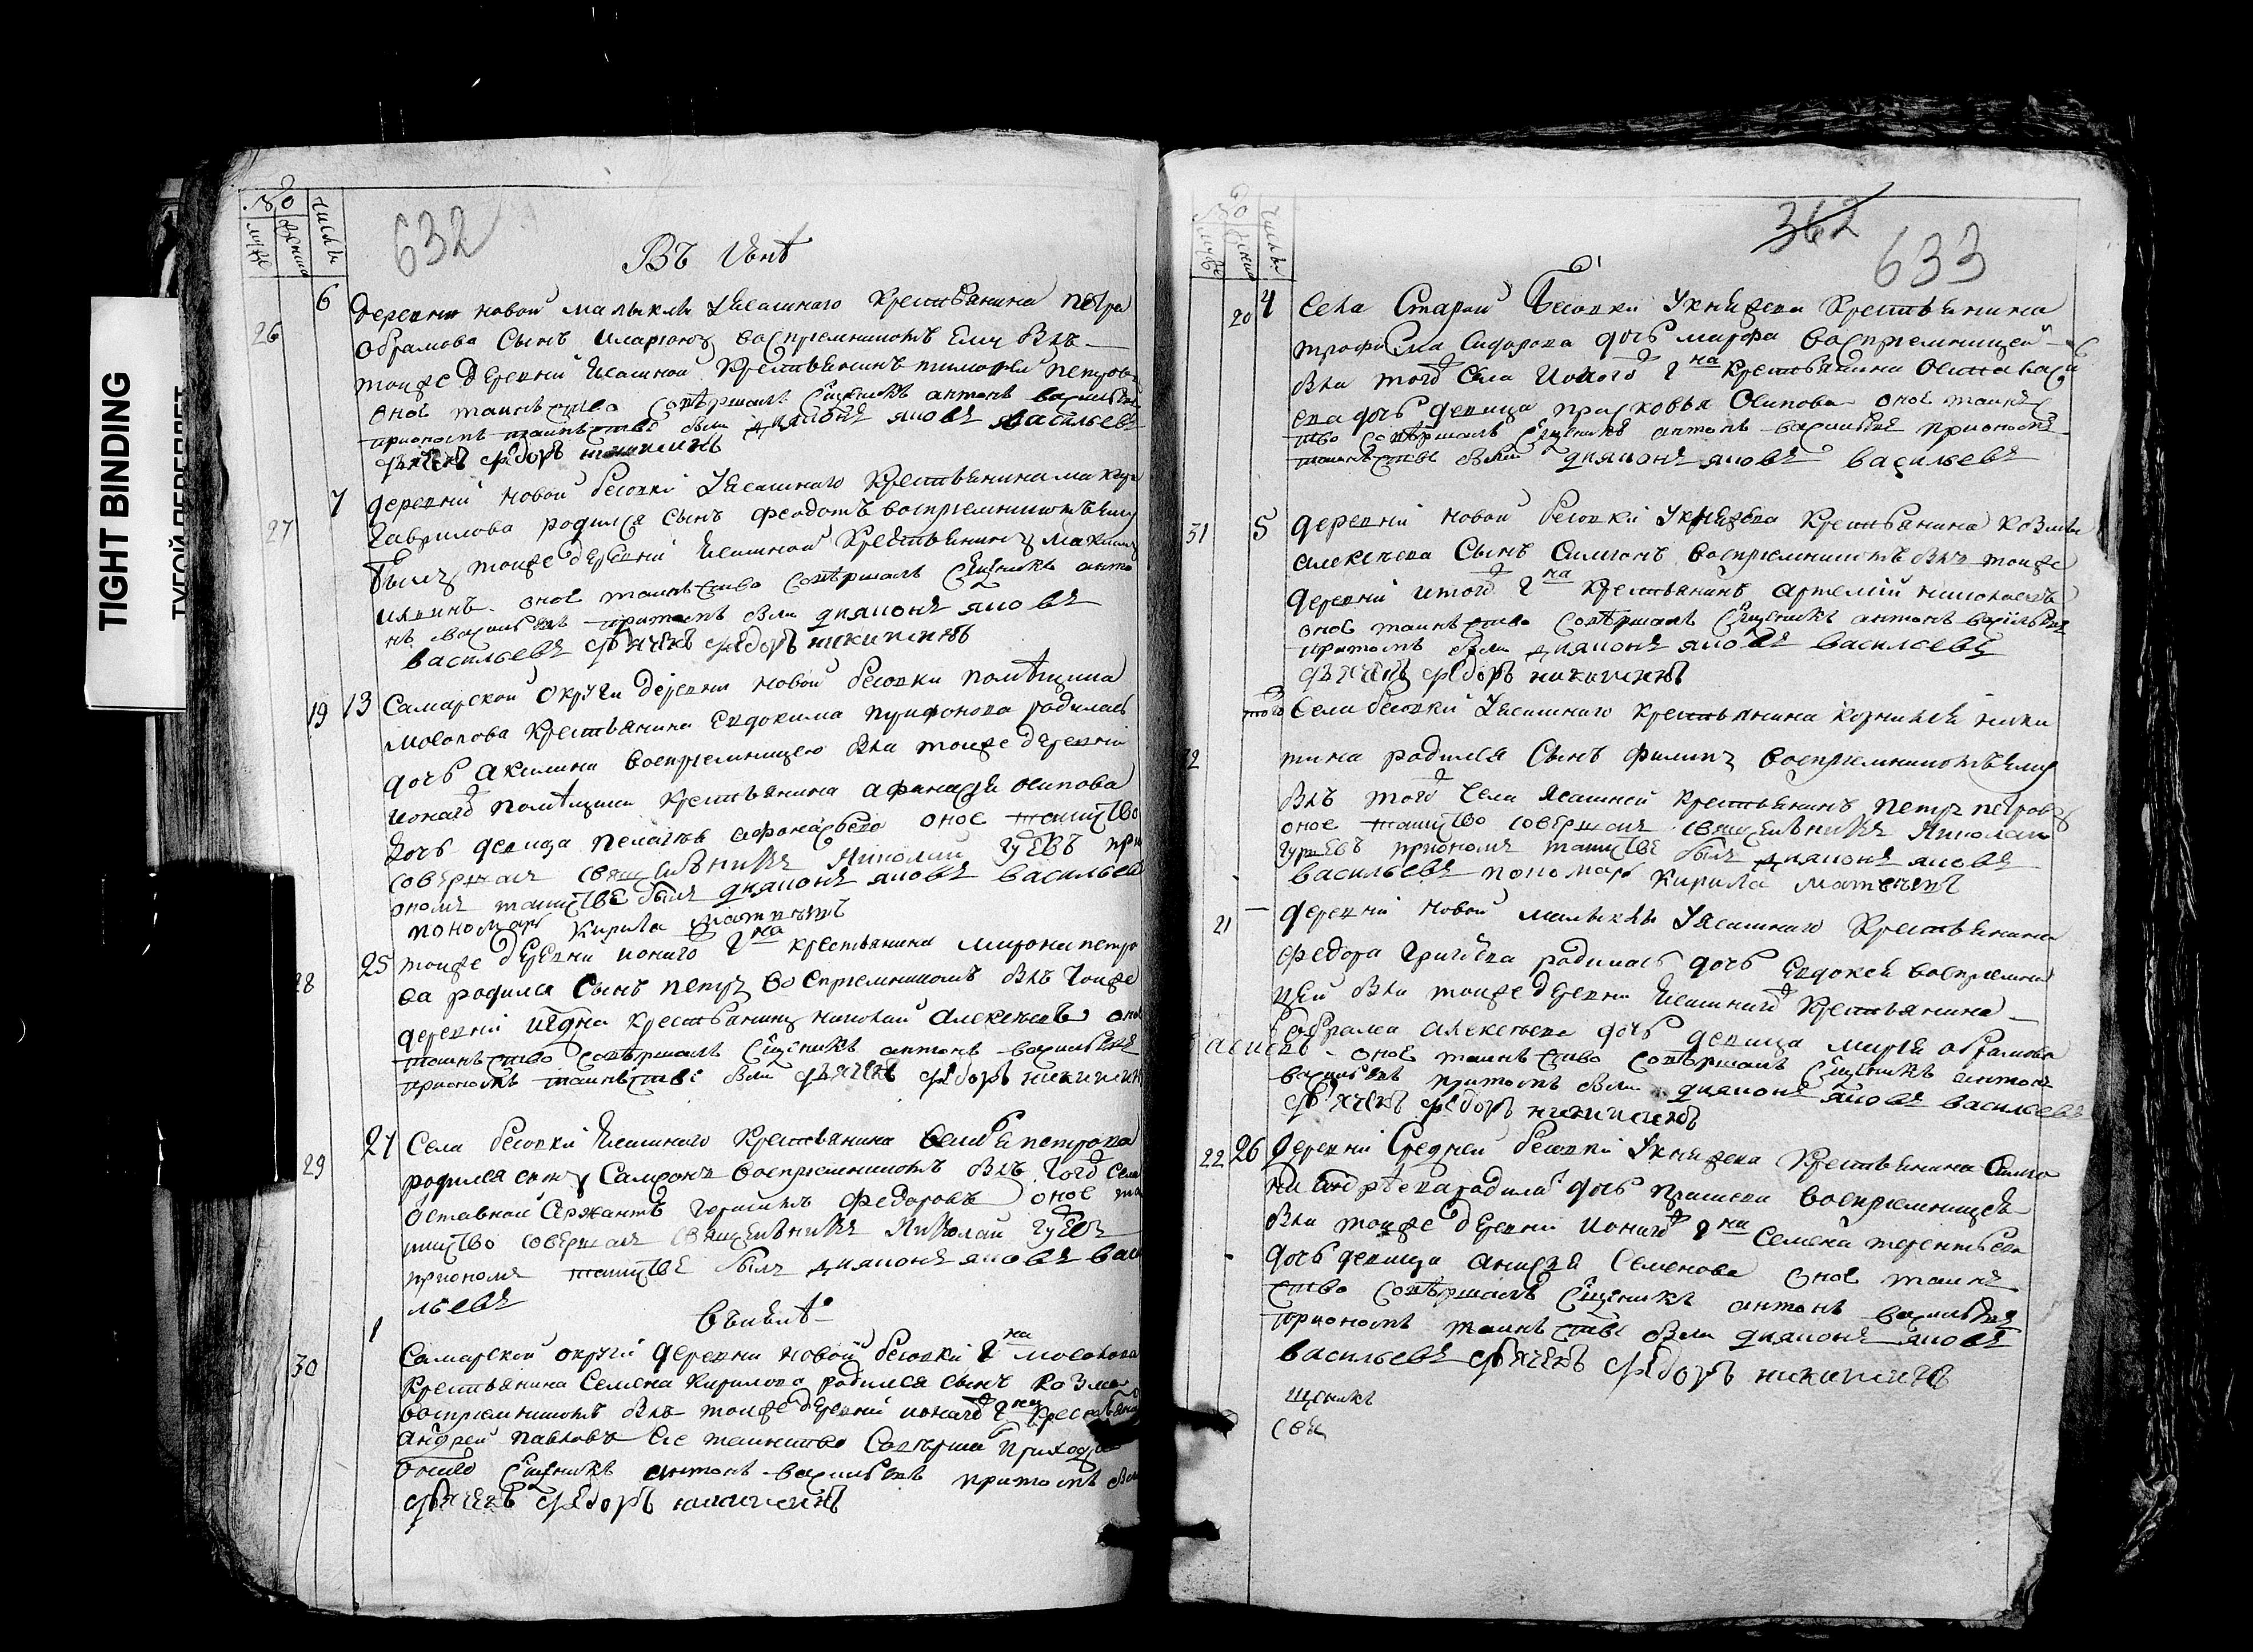 TIGHT BINDING
ТУГОЙ ПЕРЕПЛЕТ
№
муже
женска
числы
632
Въ Iюнѣ
26
6
деревни новой малыклы Уясашнаго крестьянина петра
обрамова Сынъ иларионъ воспрiемникомъ ему былъ
тоиже деревни Ясашной крестьянинъ тимофеи петровъ
оное таинъство совѣршалъ сщеникъ антонъ васильевъ
приономъ таинъстве были диаконъ яковъ васильевъ
дьячекъ федоръ никитинъ
27
7
деревни новой бесовки Уясашнаго крестьянина
гаврилова родился сынъ феодотъ воспрiемникомъ ему
былъ тоиже деревни Ясашной крестьянинъ максимъ
оное таинъство совѣршалъ сщеникъ анто
нъ васильевъ притомъ были диаконъ яковъ
васильевъ дьячекъ федоръ никитинъ
19
13
Самарской округи деревни новой бесовки помѣщика
мосолова крестьянина Евдокима родилась
дочь акилина воспрiемницею была тоиже деревни
помѣщика крестьянина афанасья осипова
дочь девица пелагея афонасьева оное таинство
совершалъ священникъ Николаи гурьевъ при
ономъ таинстве былъ диаконъ яковъ васильевъ
пономарь кирила матвеевъ
28
25
тоиже деревни оного гна крестьянина мирона петро
ва родился сынъ петръ воспрiемникомъ былъ тоиже
деревни крестьянинъ николай алексеевъ оное
таинъство совѣршалъ сщеникъ антонъ васильевъ
приономъ таинъстве были дьячекъ федоръ никитинъ
29
27
Села бесовки Ясашного крестьянина петрова
родился сынъ Самсонъ воспрiемникомъ былъ того села
оставной сержантъ федоровъ оное та
инство совершалъ священникъ Николаи гурьевъ
приономъ таинстве былъ диаконъ яковъ васи
льевъ
въ июлѣ
30
1
Самарской округи деревни новой бесовки гна мосолова
крестьянина Семена кирилова родился сынъ козма
воспрiемникомъ былъ тоиже деревни гна
андрей павловъ сие таинство совершалъ
сщеникъ антонъ васильевъ притомъ были
дьячекъ федоръ никитинъ
№
женска
числы
362
633
20
4
села Старой бесовки Укнязева крестьянина
трофима сидорова дочь марфа воспрiемницей
была того села гна крестьянина осипа васи
ева дочь девица прасковья осипова оное таинъ
ство совѣршалъ сщеникъ антонъ васильевъ приономъ
таинъстве были диаконъ яковъ васильевъ
31
5
деревни новой бесовки Укнязева крестьянина козмы
алексеева сынъ симионъ воспрiемникомъ былъ тоиже
деревни итого гна крестьянинъ артемiй николаевъ
оное таинъство совѣршалъ сщеникъ антонъ васильевъ
притомъ были диаконъ яковъ васильевъ
дьячекъ федоръ никитинъ
того
32
Села бесовки Уясашнаго крестьянина корнилы ники
тина родился сынъ филипъ воспрiемникомъ ему
былъ того села Ясашней крестьянинъ петръ петровъ
оное таинство совершалъ священникъ Николаи
гурьевъ приономъ таинстве былъ диаконъ яковъ
васильевъ пономарь кирила матвеевъ
21
деревни новой малыклы Уясашнаго крестьянина
федора григорьева родилась дочь евдокея воспрiемни
цей была тоиже деревни Ясашнаго крестьянина
обрама алексеева дочь девица марья обрамова
оное таинъство совѣршалъ сщеникъ антонъ
васильевъ притомъ были диаконъ яковъ васильевъ
дьячекъ федоръ никитинъ
22
26
деревни средней бесовки Укнязева крестьянина
андрѣева родилась дочь воспрiемницей
была тоиже деревни гна семена терентьева
дочь девица анисья семенова оное таинъ
ство совѣршалъ сщеникъ антонъ васильевъ
приономъ таинъстве были диаконъ яковъ
васильевъ дьячекъ федоръ никитинъ
щеникъ
свя